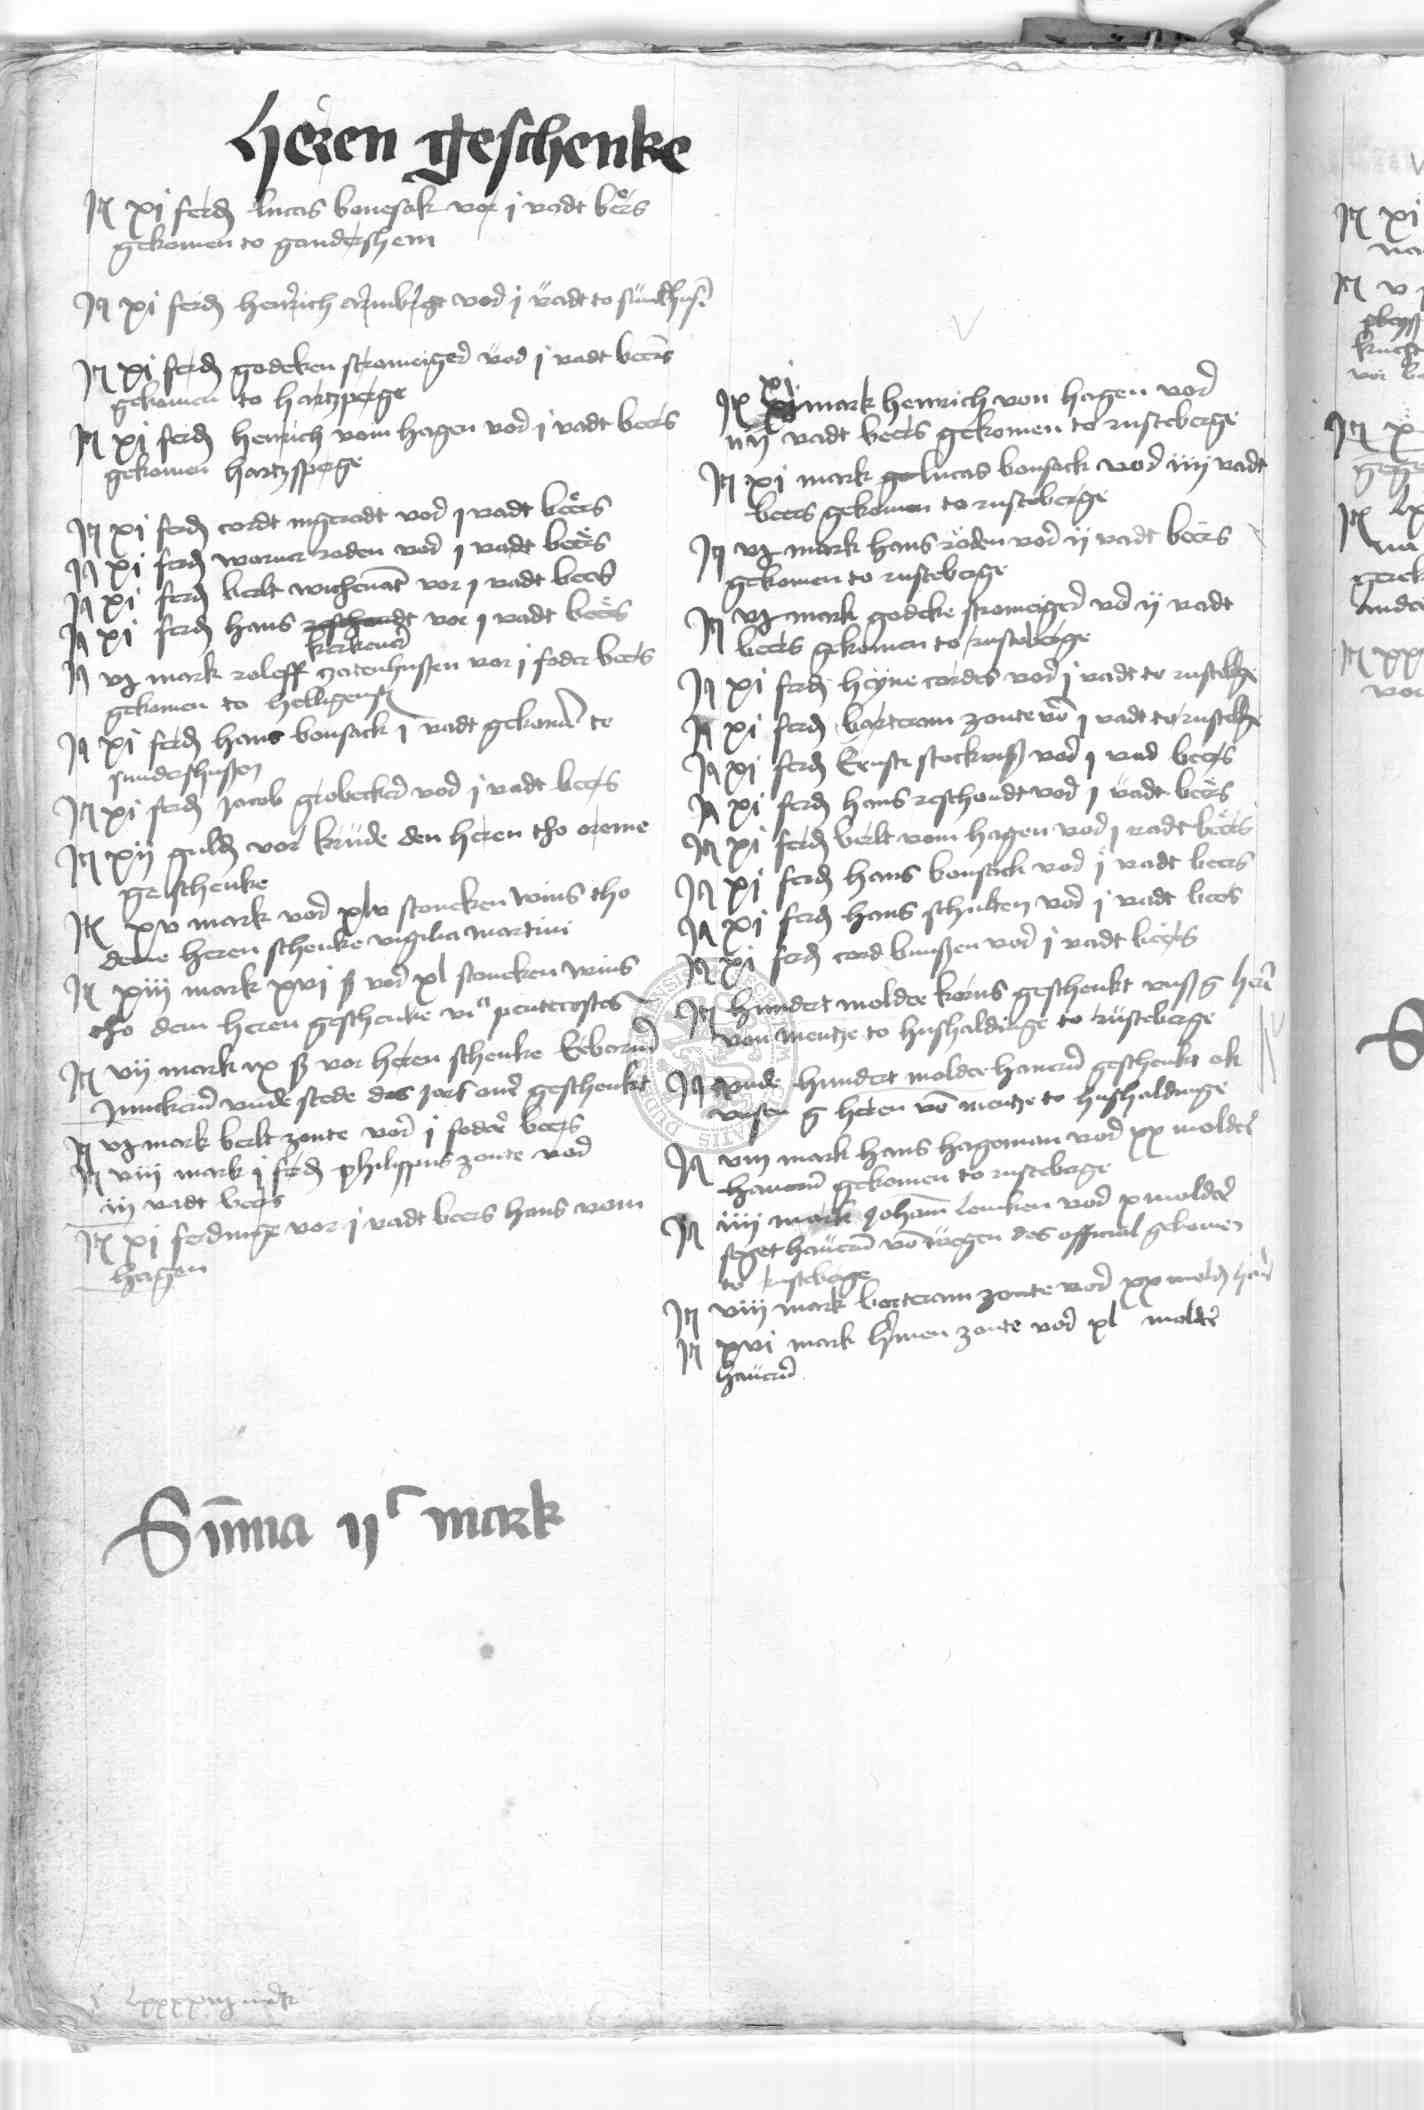 Heren geschenke
It xi ferd lucas bonesak vor j vadt beers
gekomen to gandershem
It xi ferd henrich vor j vadt to
It xi ferd godeken stromeiger vor j vadt beers
gekomen to hartzperge
It xi ferd henrich vom hagen vor j vadt beers
gekomen hartzsperge
It xi ferd cordt ingeradt vor j vadt beers
It xi ferd worner roden vor j vadt beers
It xi ferd berlt vor j vadt beers
It xi ferd hans reschondt vor j vadt beers
kerkener
It mark roleff vor j foder beers
gekomen to helligenst
It xi ferd hans bonsack j vadt gekomen te
sundershußen
It xi ferd jacob grobecker vor j vadt beers
It xij guld vor krude den heren tho oreme
geschenke
It xv mark vor xlv stoneken wins tho
deme heren schenke vigilia martini
It xiiij mark xvi ß vor xl stoneken wins
tho dem heren geschenke pentecostes
It vij mark ix ß vor heren schenke
Junckern vnde stede des jars geschenkt
It mark berlt zonte vor j foder beers
It viij mark j ferd philippus zonte vor
iij vadt beers
It xi ferding vor j vadt beers hans vom
hagen
It xi mark henrich von hagen vor
iiij vadt beers gekomen to rusteberge
It xi mark lucas bonsack vor iiij vadt
beers gekomen to rusteberge
It mark hans röden vor ij vadt beers
gekomen to rusteberge
It mark godeke stromeiger vor ij vadt
beers gekomen to rusteberge
It xi ferd heyne cordes vor j vadt to rustebge
It xi ferd berteram zonte vor j vadt to rustebge
It xi ferd Ernst stockhuß vor j vad beers
It xi ferd hans reschondt vor j vadt beers
It xi ferd berlt vom hagen vor j vadt beers
It xi ferd hans bonsack vor j vadt beers
It xi ferd hans schulten vor j vadt beers
It xi ferd cord vor j vadt beers
It hundert molder korns geschenkt vnß g hern
von mentze to hushaldinge to rusteberge
It vnde hundert molder hauern geschenkt ok
vnsen g heren von mentze to hushaldinge
It viij mark hans hageman vor xx molder
hauern gekomen to rusteberge
It iiij mark Johan lemken vor x molder
hauern von wegen des official gekomen
to rustebege
It viij mark berteram zonte vor xx mold
It xvi mark hermen zonte vor xl molder
hauern
Summa ijc mark